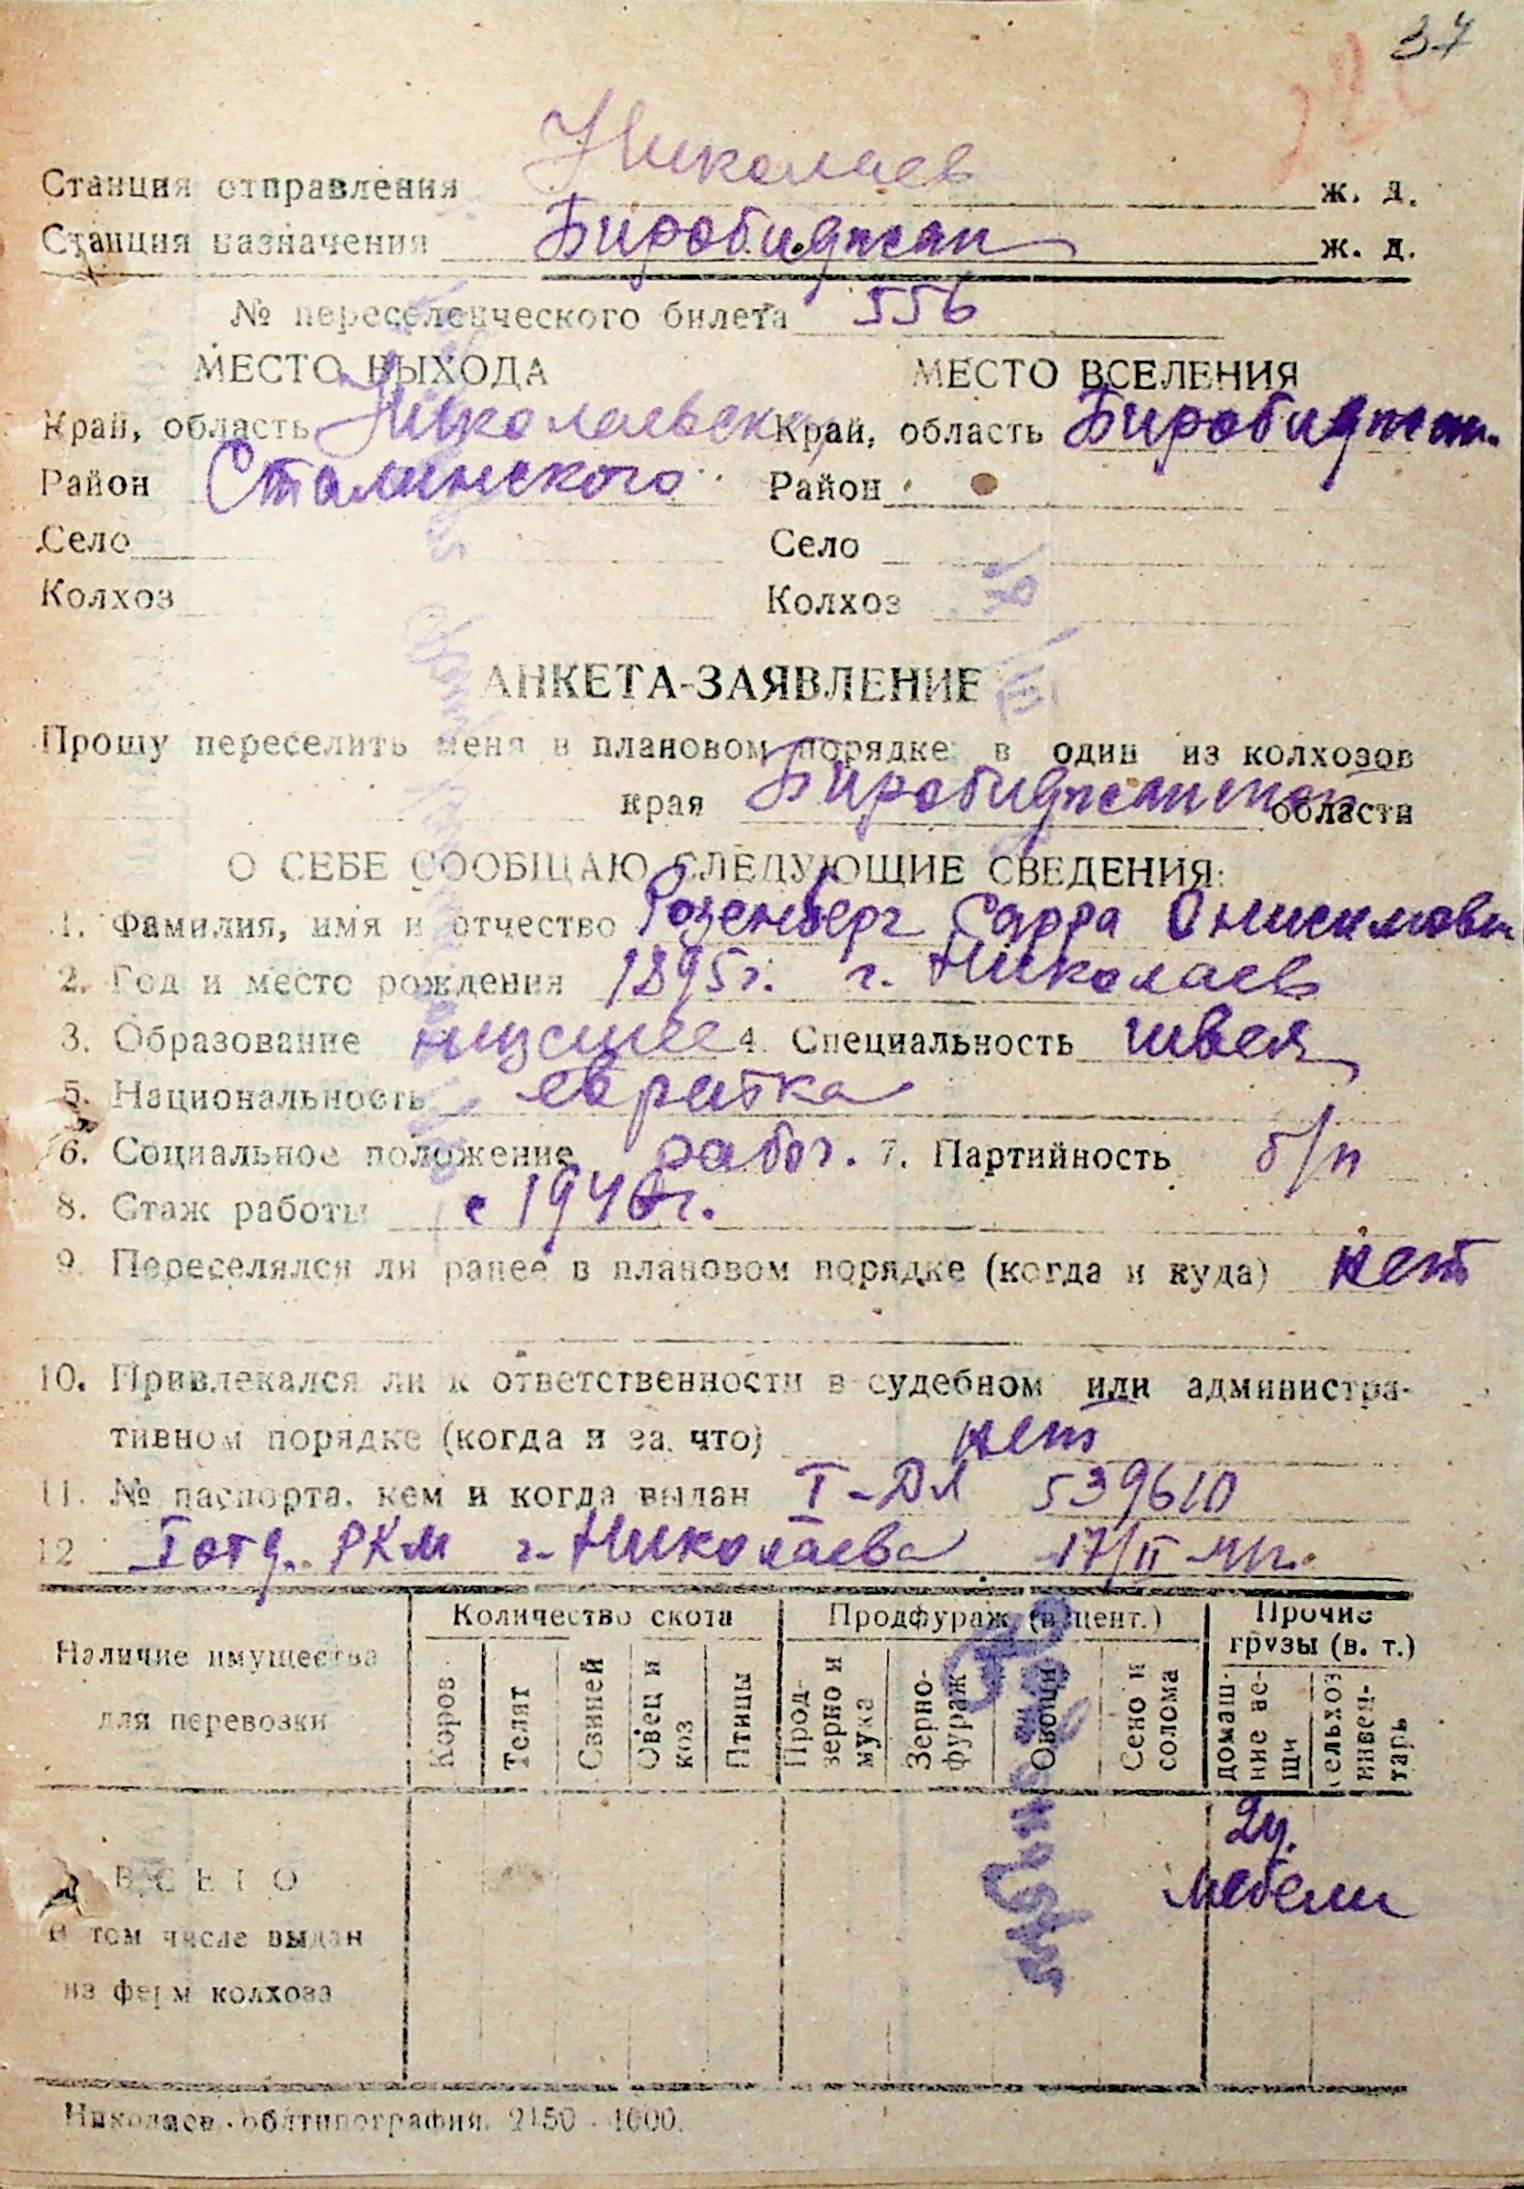 37
Станция отправления Николаев ж. д.
Станция назначения Биробиджан ж. д.
№ переселенческого билета 556
МЕСТО ВЫХОДА МЕСТО ВСЕЛЕНИЯ
Край, область Николаевск. Край, область Биробиджан.
Район Сталинского Район
Село Село
Колхоз Колхоз
АНКЕТА-ЗАЯВЛЕНИЕ
Прошу переселить меня в плановом порядке в один из колхозов
края Биробиджанской области
О СЕБЕ СООБЩАЮ СЛЕДУЮЩИЕ СВЕДЕНИЯ:
1. Фамилия, имя и отчество Розенберг Сарра Онисимовн
2. Год и место рождения 1895г. г. Николаев
3. Образование низшее 4. Специальность швея
5. Национальность еврейка
6. Социальное положение рабоч. 7. Партийность б/п
8. Стаж работы с 1946г.
9. Переселялся ли ранее в плановом порядке (когда и куда) нет
10. Привлекался ли к ответственности в судебном или администра-
тивном порядке (когда и за что) нет
11. № паспорта, кем и когда выдан I-ДЛ 539610
12 I отд. РКМ г. Николаева 17/II-41г.
Наличие имущества для перевозки
Количество скота Продфураж (в цент.) Прочие грузы (в. т.)
Коров Телят Свиней Овец и коз Птицы Прод-зерно и мука Зерно-фураж Овощи Сено и солома домаш-ние ве-щи сельхоз инвен-тарь
ВСЕГО 2ц. мебели
В том числе выдан
из ферм колхоза
Николаев, облтипография. 2150-1000.